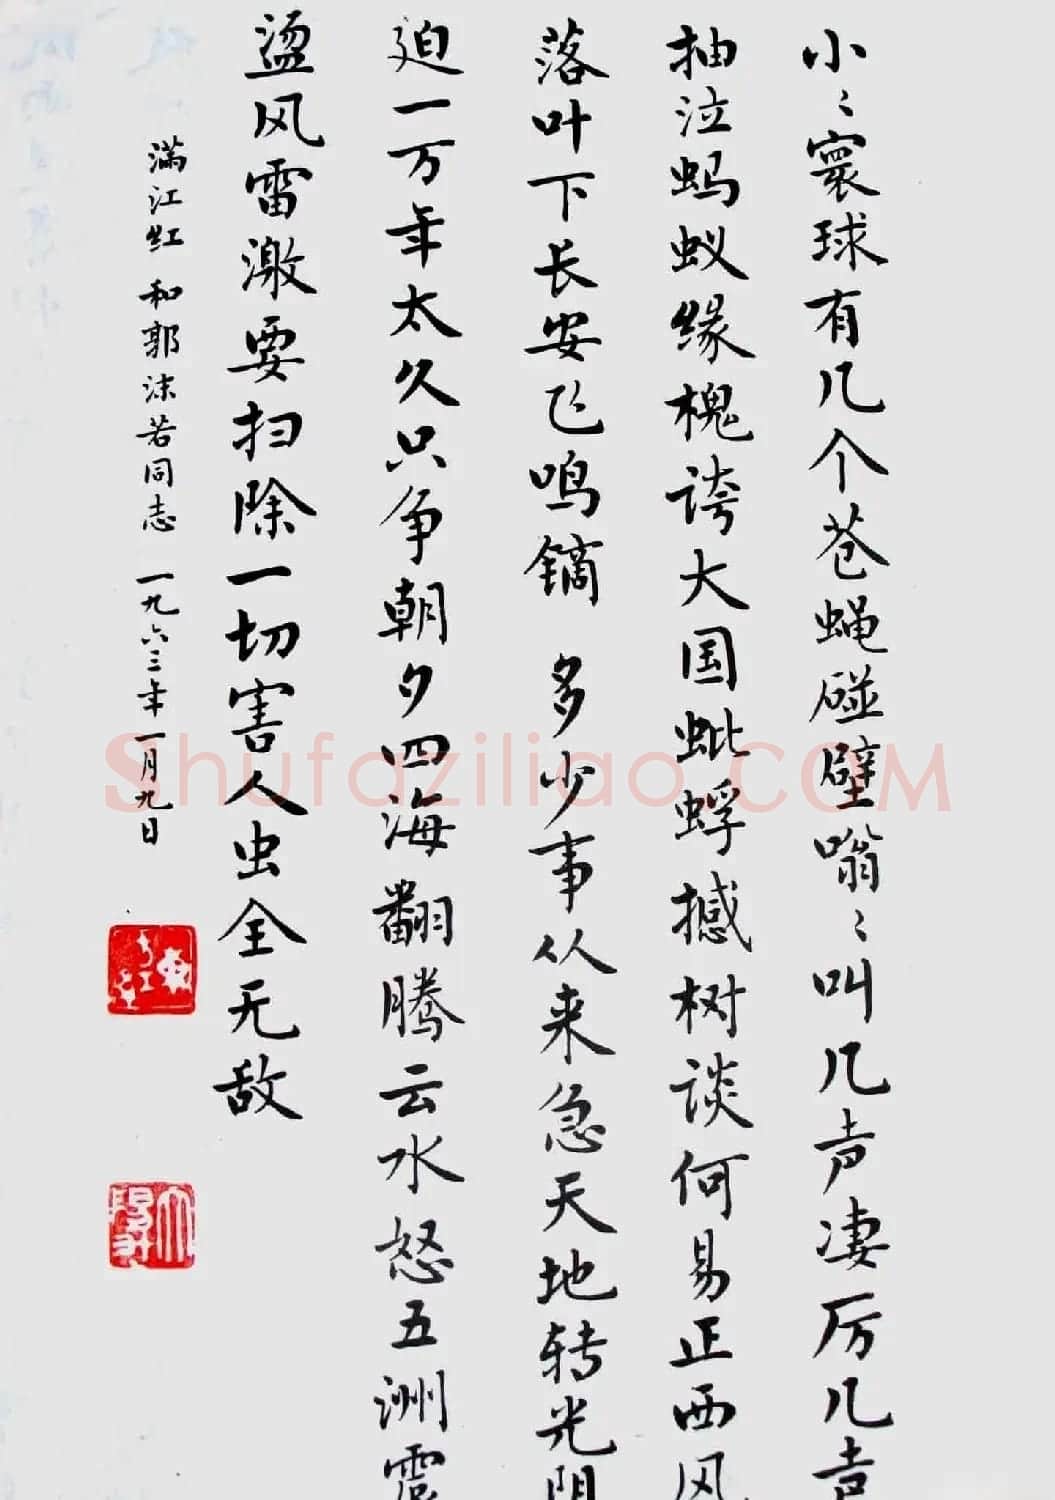 小〻寰球有几个苍蝇碰壁嗡〻叫几声凄厉几声
抽泣蚂蚁缘槐誇大国蚍蜉撼树谈何易正西风
落叶下长安飞鸣镝 多少事从来急天地转光阴
廹一万年太久只争朝夕四海翻腾云水怒五洲震
盪风雷激要扫除一切害人虫全无敌
满江红 和郭沫若同志 一九六三年一月九日
Shufaziliao.COM